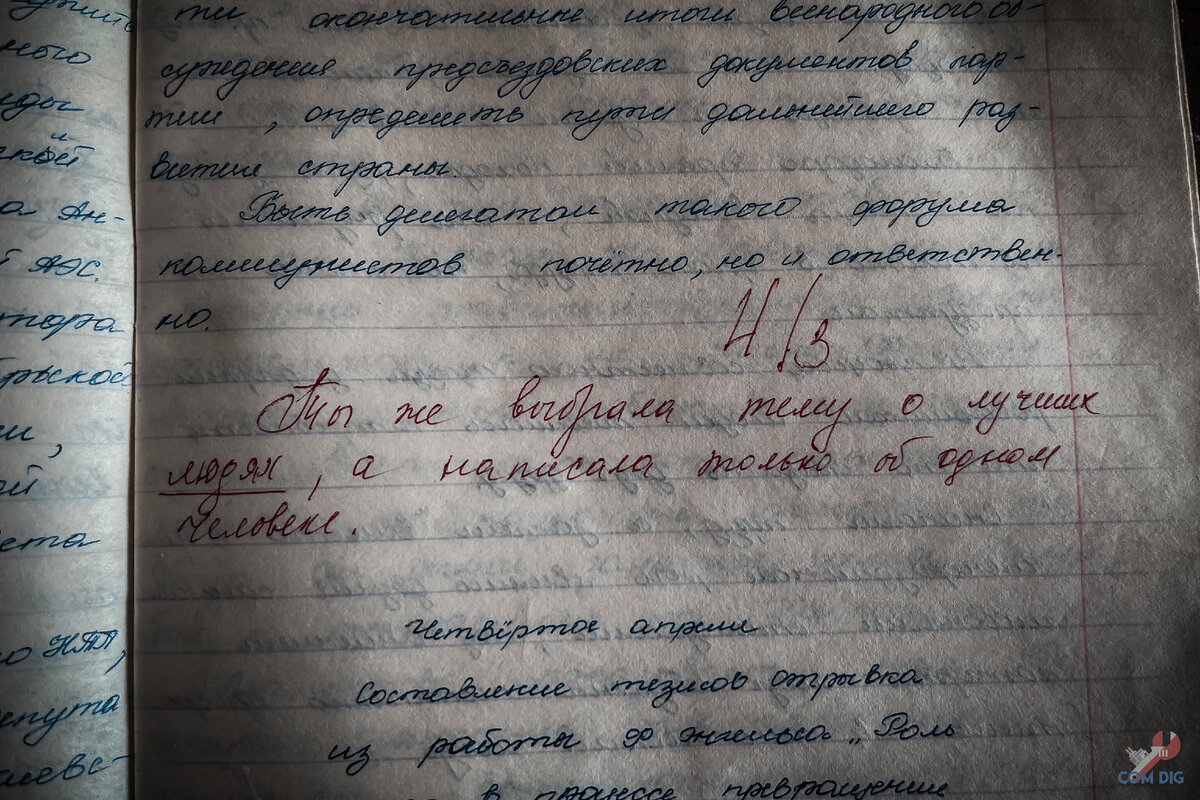 ного
ей
а Ан-
АЭС.
тора
брьской
и,
ой
ета
о НТП,
епута
ти окончательные итоги всенародного об-
суждения предсъездовских документов пар-
тии, определить пути дальнейшего раз-
вития страны.
Быть делегатом такого форума
коммунистов почётно, но и ответствен-
но.
4/3
Ты же выбрала тему о лучших
людях, а написала только об одном
человеке.
Четвёртое апреля
Составление тезисов отрывка
из работы Ф. Энгельса „Роль
в процессе превращения
COM DIG